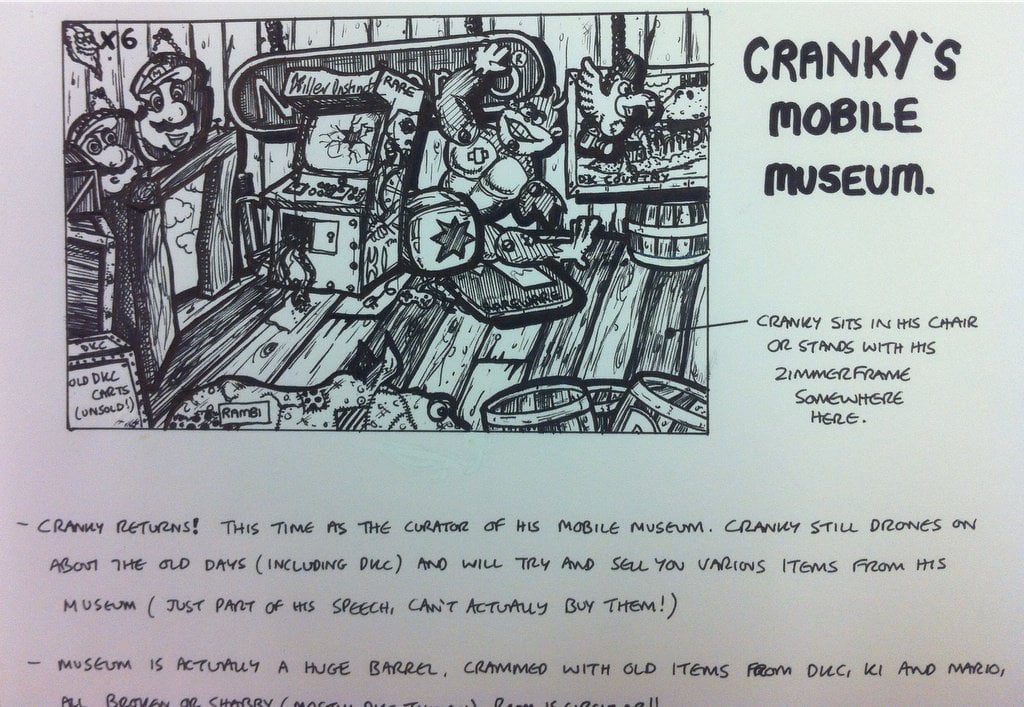 CRANKY'S
MOBILE
MUSEUM.
X6
Killer Instinct
RARE
®
DK COUNTRY
RAREWARE
DKC
OLD DKC
CARTS
(UNSOLD!)
RAMBI
CRANKY SITS IN HIS CHAIR
OR STANDS WITH HIS
ZIMMERFRAME
SOMEWHERE
HERE.
- CRANKY RETURNS! THIS TIME AS THE CURATOR OF HIS MOBILE MUSEUM. CRANKY STILL DRONES ON
ABOUT THE OLD DAYS (INCLUDING DKC) AND WILL TRY AND SELL YOU VARIOUS ITEMS FROM HIS
MUSEUM (JUST PART OF HIS SPEECH, CAN'T ACTUALLY BUY THEM!)
- MUSEUM IS ACTUALLY A HUGE BARREL, CRAMMED WITH OLD ITEMS FROM DKC, KI AND MARIO,
ALL BROKEN OR SHABBY